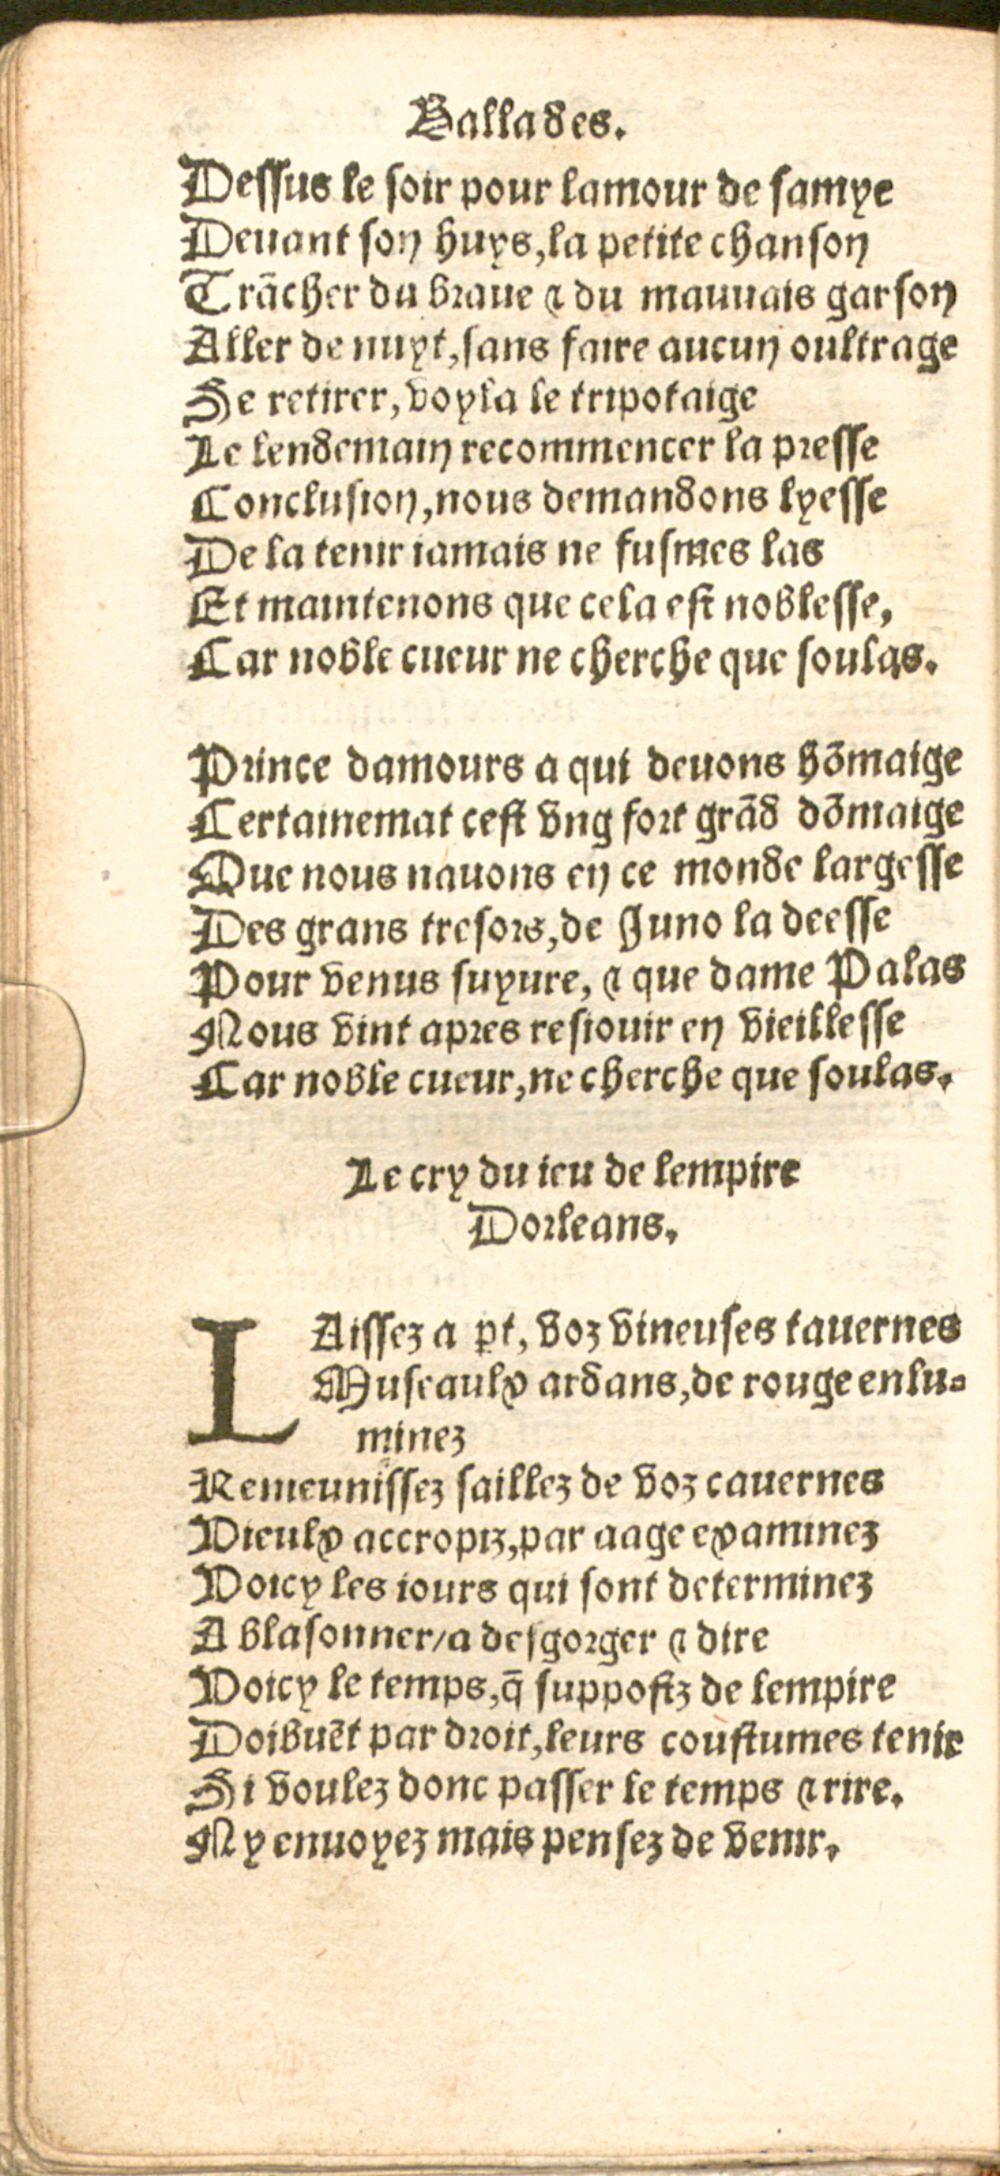 Ballades.
Dessus le soir pour lamour de samye
Deuant son huys, la petite chanson
Trācher du braue & du mauuais garson
Aller de nuyt, sans faire aucun oultrage
Se retirer, voyla le tripotaige
Le lendemain recommencer la presse
Conclusion, nous demandons lyesse
De la tenir iamais ne fusmes las
Et maintenons que cela est noblesse,
Car noble cueur ne cherche que soulas.
Prince damours a qui deuons hōmaige
Certainemat cest vng fort grād dōmaige
Que nous nauons en ce monde largesse
Des grans tresors, de Juno la deesse
Pour venus suyure, & que dame Palas
Nous vint apres resiouir en vieillesse
Car noble cueur, ne cherche que soulas.
Le cry du ieu de lempire
Dorleans.
LAissez a ꝑt, voz vineuses tauernes
Museaulx ardans, de rouge enlu-
minez
Remeunissez saillez de voz cauernes
Vieulx accropiz, par aage examinez
Voicy les iours qui sont determinez
A blasonner/a desgorger & dire
Voicy le temps, q̄ suppostz de lempire
Doibuēt par droit, leurs coustumes tenir
Si voulez donc passer le temps & rire.
Ny enuoyez mais pensez de venir.